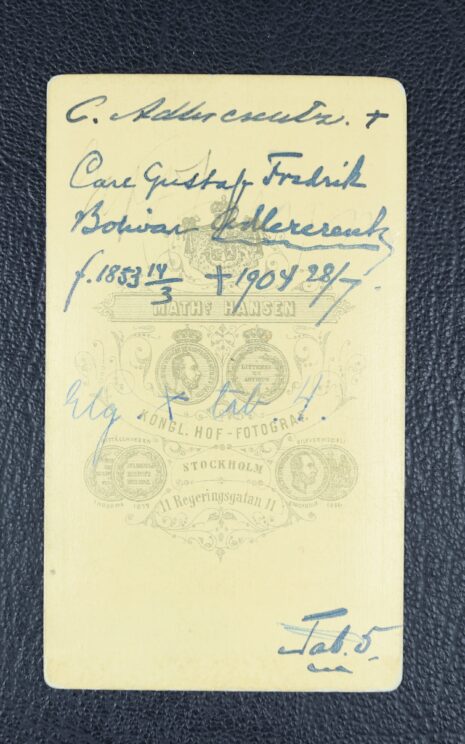 C. Adlercreutz. +
Carl Gustaf Fredrik
Bolivar Adlercreutz
f. 1853 14/3 + 1904 28/7.
MATHS HANSEN
LITTERIS ET ARTIBUS
Elg. x tab. 4.
KONGL. HOF-FOTOGRAF
STOCKHOLM
11 Regeringsgatan 11
Tab. 5